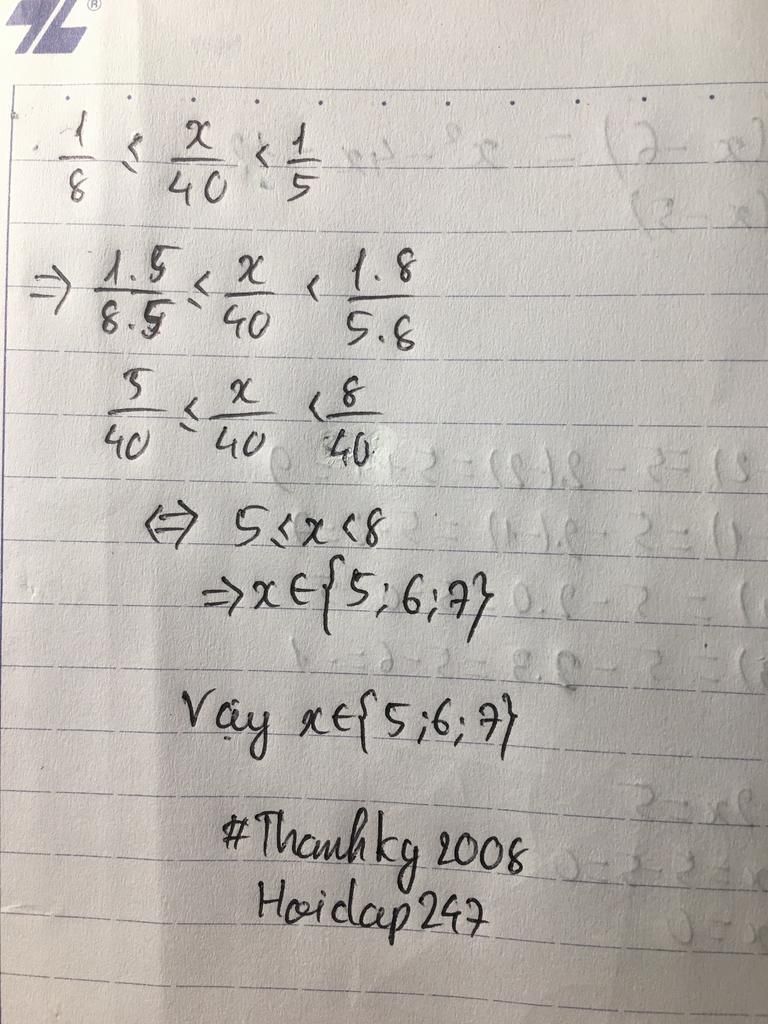 1/8 ≤ x/40 < 1/5
⇒ 1.5/8.5 ≤ x/40 < 1.8/5.8
5/40 ≤ x/40 < 8/40
⇔ 5 ≤ x < 8
⇒ x ∈ {5;6;7}
Vậy x ∈ {5;6;7}
#Thanhkg 2008
Hoidap247